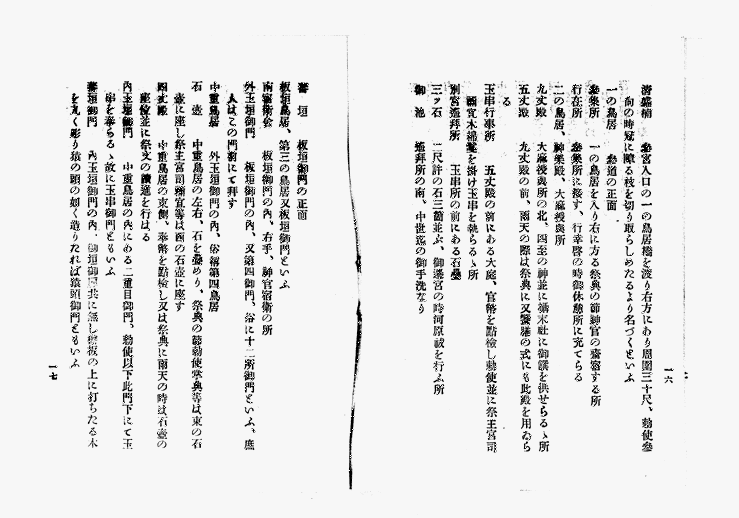 清盛楠　參宮入口の一の鳥居橋を渡り右方にあり周圍三十尺、勅使參
向の時冠に障る枝を切り取らしめたるより名づくといふ
一の鳥居　參道の正面
參集所　一の鳥居を入り右に方る祭典の節神官の齋宿する所
行在所　參集所に接す、行幸啓の時御休憩所に充てらる
二の鳥居、神樂殿、大麻授與所
九丈殿　大麻授與所の北、四至の神並に攝末社に御饌を供せらるゝ所
五丈殿　九丈殿の前、雨天の際は祭典に又饗膳の式にも此殿を用ゐら
る
玉串行事所　五丈殿の前にある大庭、官幣を點檢し勅使並に祭主宮司
禰宜木綿鬘を掛け玉串を執らるゝ所
別宮遙拜所　玉串所の前にある石疊
三ッ石　二尺許の石三箇並ぶ、御遷宮の時河原祓を行ふ所
御池　遙拜所の南、中世迄の御手洗なり
一六
蕃垣　板垣御門の正面
板垣鳥居、第三の鳥居又板垣御門といふ
南宿衛舍　板垣御門の內、右手、神官宿衛の所
外玉垣御門　板垣御門の內、又第四御門、俗に十二所御門といふ、庶
人はこの門前にて拜す
中重鳥居　外玉垣御門の內、俗稱第四鳥居
石壺　中重鳥居の左右、石を疊めり、祭典の節勅使掌典等は東の石
壺に座し祭主宮司禰宜等は西の石壺に座す
四丈殿　中重鳥居の東側、奉幣を點檢し又は祭典に雨天の時は石壺の
座位並に祭文の讀進を行はる
內玉垣御門　中重鳥居の內にある二重目御門、勅使以下此門下にて玉
串を奉らる、故に玉串御門ともいふ
蕃垣御門　內玉垣御門の內、御垣御扉共に無し壁板の上に打ちたる木
を丸く彫り猿の頭の如く造りたれば猿頭御門ともいふ
一七